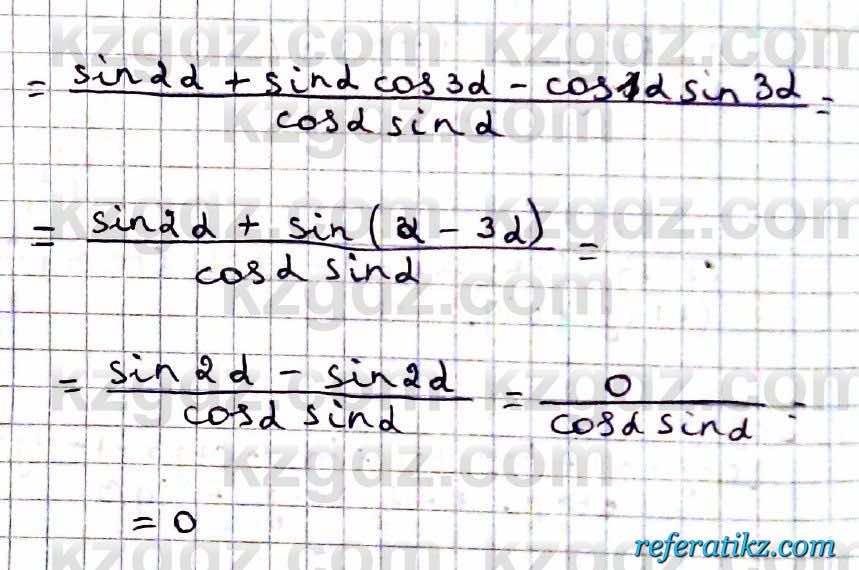 = (sin2α + sinα cos3α - cos1α sin3α) / (cosα sinα) =
= (sin2α + sin(α - 3α)) / (cosα sinα) =
= (sin2α - sin2α) / (cosα sinα) = 0 / (cosα sinα) =
= 0
kzgdz.com
referatikz.com